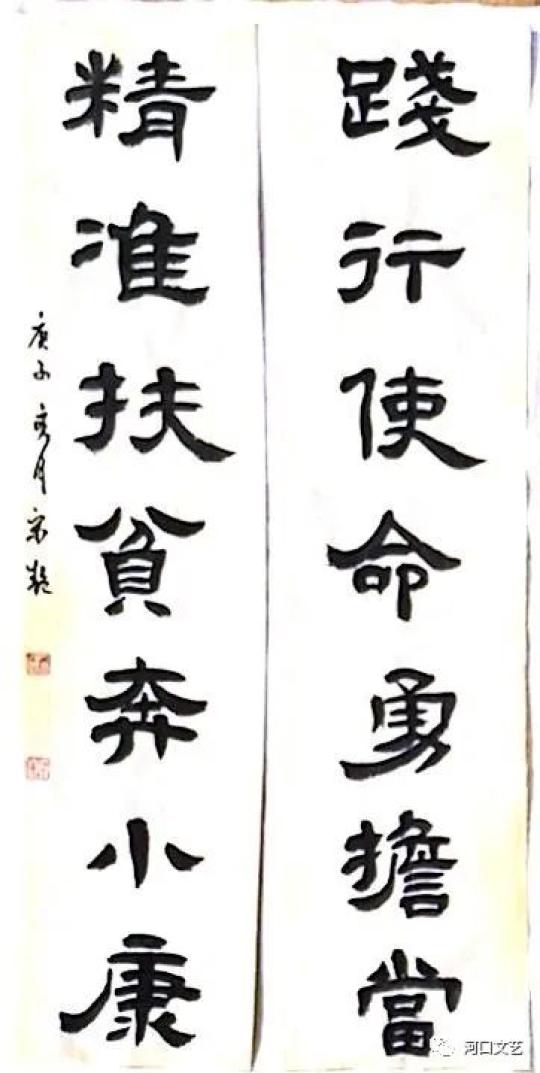 踐行使命勇擔當
精准扶貧奔小康
庚子亥月宋
河口文艺